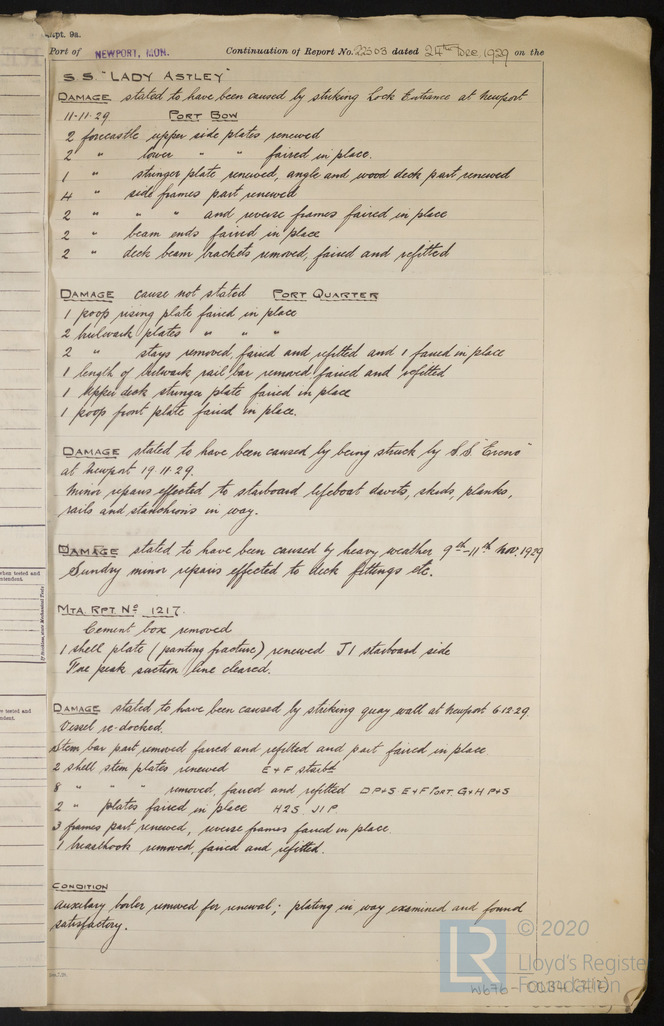 Rpt. 9a.
Port of NEWPORT, MON. Continuation of Report No. 22303 dated 24th Dec. 1929 on the
S.S. "LADY ASTLEY"
DAMAGE stated to have been caused by striking Lock Entrance at Newport
11-11-29. PORT BOW
2 forecastle upper side plates renewed
2 " lower " " faired in place.
1 " stringer plate renewed, angle and wood deck part renewed
4 " side frames part renewed
2 " " " and reverse frames faired in place
2 " beam ends faired in place
2 " deck beam brackets removed, faired and refitted
DAMAGE cause not stated PORT QUARTER
1 poop rising plate faired in place
2 bulwark plates " " "
2 " stays removed, faired and refitted and 1 faired in place
1 length of bulwark rail bar removed faired and refitted
1 upper deck stringer plate faired in place
1 poop front plate faired in place.
DAMAGE stated to have been caused by being struck by S.S.
at Newport 19.11.29.
Minor repairs effected to starboard lifeboat davits, skids, planks,
rails and stanchions in way.
DAMAGE stated to have been caused by heavy weather 9th-11th Nov. 1929
Sundry minor repairs effected to deck fittings etc.
MTA. RPT. No 1217.
Cement box removed
1 shell plate (panting fracture) renewed J1 starboard side
Fore peak suction line cleared.
DAMAGE stated to have been caused by striking quay wall at Newport 6.12.29
Vessel re-docked.
Stem bar part removed faired and refitted and part faired in place
2 shell stem plates renewed E & F starbd.
8 " " " removed, faired and refitted D P&S E&F PORT. G&H P&S
2 " plates faired in place H2S. J1P.
3 frames part renewed, reverse frames faired in place.
1 breasthook removed, faired and refitted.
CONDITION
Auxiliary boiler removed for renewal; plating in way examined and found
satisfactory.
© 2020
LR
Lloyd's Register
Foundation